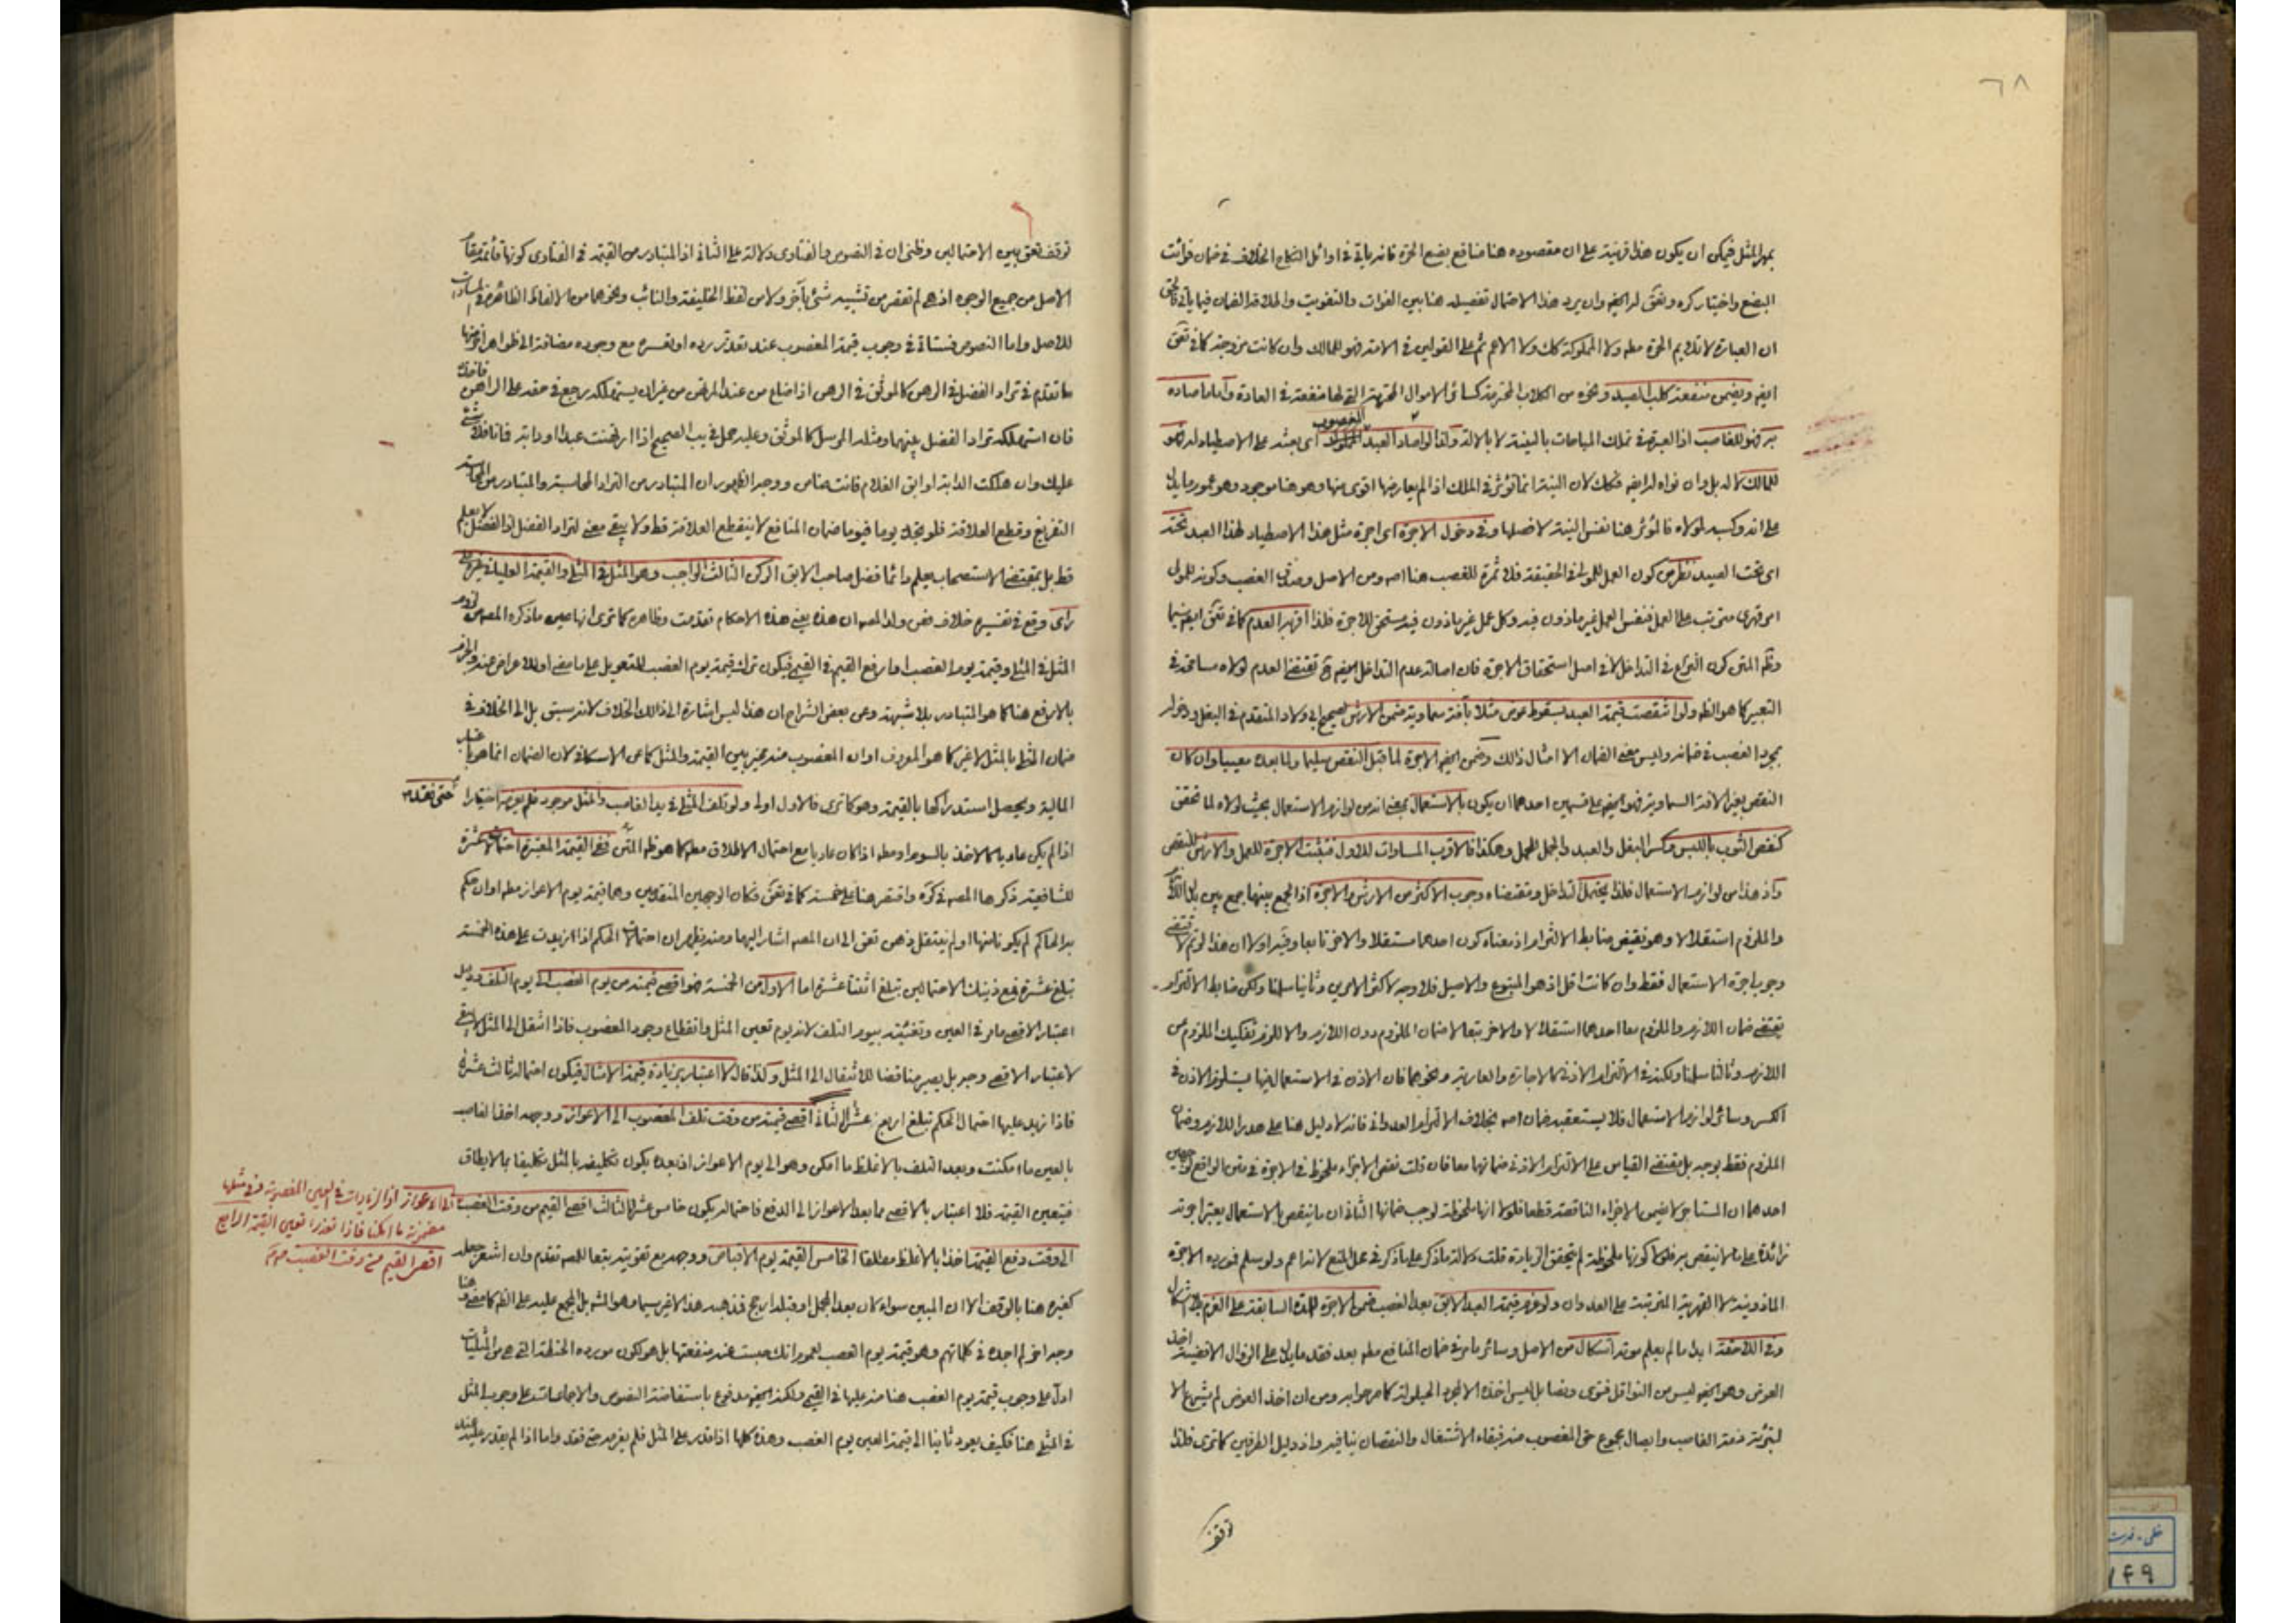 ٦٨
بمهر المثل فيمكن ان يكون هذا قرينة على ان مقصوده هنا منافع بضع الحرة فانه ياتي في اوائل النكاح الخلاف في ضمان فوائت
البضع واختياركره وتعق له ايضا وان يرد هذا الاحتمال تفصيله هنا بين الفوات والتفويت واطلاقه الضمان فيما ياتي
ان العبارة لا تلايم الحرة مطم ولا المملوكة كك ولا الاعم ثم على القولين في الامة فهو للمالك وان كانت مزوجة كما في تعق
ايضا ويضمن منفعة كلب الصيد ونحوه من الكلاب المحترمة كسائر الاموال المحترمة التي لها منفعة في العادة واما ما صاده
به فهو للغاصب اذ العبرة في تملك المباحات بالنية لا بالالة ولذا لو اصاد العبد المغصوب اى بعثه على الاصطياد له فهو
للمالك لا له بل وان نواه له ايضا فكك لان النية انما تؤثر في الملك اذا لم يعارضها اقوى منها وهو هنا موجود وهو عموم ما دل
على انه وكسبه لمولاه فالمؤثر هنا نفس النية لا فصلها وفي دخول الاجرة اى اجرة مثل هذا الاصطياد لهذا العبد تحته
اى تحت الصيد نظر من كون العمل للمولى في الحقيقة فلا ثمرة للغصب هنا اصه ومن الاصل وصدق الغصب وكونه للمولى
امر قهرى مترتب على العمل فنفس العمل غير ماذون فيه وكل عمل غير ماذون فيه مستحق للاجرة فلذا اقربه العدم كما في تعق ايضا
وظم المتن كون النزاع في التداخل لا في اصل استحقاق الاجرة فان اصالة عدم التداخل ايضا تقتضي العدم لولاه مسامحة في
التعبير كما هو الظم ولو انتقصت قيمة العبد بسقوط عضو مثلا بآفة سماوية ضمن الارش لصحيح ابي ولاد المتقدم في البغل ودخوله
بمجرد الغصب في ضمانه وليس معنى الضمان الا امثال ذلك وضمن ايضا الاجرة لما قبل النقص سليما ولما بعده معيبا وان كان
النقص بغير الافة السماوية فهو ايضا على قسمين احدهما ان يكون بالاستعمال بمعنى انه من لوازم الاستعمال بحيث لولاه لما تحقق
كنقص الثوب باللبس وكسر البغل والعبد والجمل للحمل وهكذا فالاقرب المساوات للاول فتثبت الاجرة للعمل والارش للنقص
واذ هذا من لوازم الاستعمال فلذا يحتمل التداخل ومقتضاه وجوب الاكثر من الارش والاجرة اذ الجمع بينهما جمع بين بدلى اللازم
والملزوم استقلالا وهو نقيض ضابط الالتزام اذ معناه كون احدهما مستقلا والاخر تابعا وفيه اولا ان هذا لو تم لاقتضى
وجوب اجرة الاستعمال فقط وان كانت اقل اذ هو المتبوع والاصيل فلا وجه لاكثر الامرين وثانيا سلمنا ولكن ضابط الالتزام
يقتضي ضمان اللازم والملزوم معا احدهما استقلالا والاخر تبعا لا ضمان الملزوم دون اللازم والا للزم تفكيك الملزوم من
اللازم وثالثا سلمنا ولكنه في الالتزام الاذني كالاجارة والعارية ونحوهما فان الاذن في الاستعمال فيها يستلزم الاذن في
الكسر وسائر لوازم الاستعمال فلا يستعقبه ضمان اصه بخلاف الالتزام العدواني فانه لا دليل هنا على هدر اللازم وضمان
الملزوم فقط بوجه بل يقتضي القياس على الالتزام الاذني ضمانهما معا فان قلت نقص الاجزاء ملحوظ في الاجرة في متن الواقع لوجهين
احدهما ان المستاجر لا يضمن الاجزاء الناقصة قطعا فلولا انها ملحوظة لوجب ضمانها الثاني ان ما ينقص بالاستعمال يعتبر اجرته
زائدة على ما لا ينقص به فلولا كونها ملحوظة لم يتحقق الزيادة قلت دلالة ما ذكر على ما ذكر في محل المنع لانه اعم ولو سلم فمورده الاجرة
الماذونية لا القهرية المترتبة على العدوان ولو غرم قيمة العبد الابق بعد الغصب ضمن الاجرة للمدة السابقة على الغرم بلا اشكال
وفي اللاحقة ابدا ما لم يعلم موته اشكال من الاصل وسائر ما مر في ضمان المنافع مطم بعد فقد ما يدل على الزوال الا قضية اخذ
العوض وهو ايضا ليس من النواقل فتوى ونصا بل ليس اخذه الا لمجرد الحيلولة كما مر جوابه ومن ان اخذ العوض لم يشرع الا
لتبرئة ذمة الغاصب وايصال مجموع حق المغصوب منه فبقاء الاشتغال والنقصان ينافيه واذ دليل الطرفين كما ترى فلذا
توقف
توقف تعق بين الاحتمالين وظني ان في النصوص والفتاوى دلالة على الثاني اذ المتبادر من القيمة في الفتاوى كونها قائمة مقام
الاصل من جميع الوجوه اذ هي لم تقصر من تشبيه شئ بآخر ولا من لفظ الخليفة والنائب ونحوهما من الالفاظ الظاهرة في المساوات
للاصل واما النصوص فمستاتة في وجوب قيمة المغصوب عند تعذر رده او تعسره مع وجوده مضافة الى ظواهر
ما تقدم في تراد الفضل في الرهن كالموثق في الرهن اذا ضاع من عند المرتهن من غير ان يستهلكه رجع في حقه على الراهن فاخذه
فان استهلكه تراد الفضل بينهما ومثله المرسل كالموثق وعليه حمل في يب الصحيح اذا ارتهنت عبدا او دابة فماتا فلا شئ
عليك وان هلكت الدابة او ابق الغلام فانت ضامن ووجه الظهور ان المتبادر من التراد المحاسبة والمتبادر من المحاسبة
التفريغ وقطع العلاقة فلو تجدد يوما فيوما ضمان المنافع لا ينقطع العلاقة قط ولا يبقى معنى لتراد الفضل اذ الفضل لا يعلم
قط بل بمقتضى الاستصحاب يعلم دائما فضل صاحب الابق الركن الثالث الواجب وهو المثل في المثلي والقيمة العليا في غيره على
راى وقع في تفسيره خلاف فعن ولد المصه ان هذه يعني هذه الاحكام تقدمت وظاهره كما ترى انها عين ما ذكره المصه من لزوم
المثل في المثلي وقيمة يوم الغصب او ارفع القيم في القيمي فيكون ترك قيمة يوم الغصب للتعويل على ما مضى او للاعراض عنه والجزم
بالارفع هنا كما هو المتبادر بلا شبهة وعن بعض الشراح ان هذا ليس اشارة الى ذلك الخلاف لانه سبق بل الى الخلاف في
ضمان المثلي بالمثل لا غير كما هو المعروف او ان المغصوب منه مخير بين القيمة والمثل كما عن الاسكافي لان الضمان انما هو باعتبار
المالية ويحصل استدراكها بالقيمة وهو كما ترى فالاول اولى ولو تلف المثلي في يد الغاصب والمثل موجود فلم يغرمه اختيارا حتى فقد
اذا لم يكن عاديا كالاخذ بالسوم او مطم اذا كان عاديا مع احتمال الاطلاق مطم كما هو ظم المتن ففي القيمة المعتبرة احتمالات عشرة
للشافعية ذكرها المصه في كره واقتصر هنا على خمسة كما في تعق فكان الوجهين المتقدمين وهما قيمة يوم الاعواز مطم او ان حكم
به الحاكم لم يكونا منها او لم ينتقل ذهن تعق الى ان المصه اشار اليهما ومنه يظهر ان احتمالات الحكم اذا زيدت على هذه الخمسة
تبلغ عشرة فمع ذينك الاحتمالين تبلغ اثنتا عشرة اما الاول من الخمسة فهو اقصى قيمته من يوم الغصب الى يوم التلف ودليل
اعتبار الاقصى ما مر في العين وتغييته بيوم التلف لانه يوم تعين المثل وانقطاع وجود المغصوب فاذا انتقل الى المثل لا يبقى
لاعتبار الاقصى وجه بل يصير مناقضا للانتقال الى المثل ولذا قال لا اعتبار بزيادة قيمة الامثال فيكون احتماله ثالث عشرة
فاذا زيد عليها احتمال الحكم تبلغ اربع عشرة الثاني اقصى قيمته من وقت تلف المغصوب الى الاعواز ووجهه اخذ الغاصب
بالعين ما امكنت وبعد التلف بالاغلظ ما امكن وهو الى يوم الاعواز اذ بعده يكون تكليفه بالمثل تكليفا بما لا يطاق
فيتعين القيمة فلا اعتبار بالاقصى مما بعد الاعواز الى الدفع فاحتماله يكون خامس عشرة الثالث اقصى القيم من وقت الغصب
الى الاعواز اذ الزيادات في العين المغصوبة وفي مثلها
مضمونة ما امكنا فاذا تعذرا تعين القيمة الرابع
اقصى القيم من وقت الغصب صح
الى وقت دفع القيمة اخذا بالاغلظ مطلقا الخامس القيمة يوم الاقباض ووجهه مع تقويته تبعا للمصه تقدم وان اشعر جعله
كغيره هنا بالتوقف الا ان المبين سواء كان بعد المجمل او قبله ارجح فمذهبه هذا الاخير سيما وهو المشهور بل المجمع عليه على الظم كما مضى وهنا
وجه اخر لم اجده في كلماتهم وهو قيمة يوم الغصب لعموم انك حبست عنه منفعتها بل هو لكون مورده الحنطة التي هي من المثليات
ادل على وجوب قيمة يوم الغصب هنا منه عليها في القيمي ولكنه ايضا مدفوع باستفاضة النصوص والاجماعات على وجوب المثل
في المثلي هنا فكيف يعود ثانيا الى قيمة العين يوم الغصب وهذه كلها اذا قدر على المثل فلم يغرمه حتى فقد واما اذا لم يقدر عليه عند
خطی ـ فهرست
١٤٩